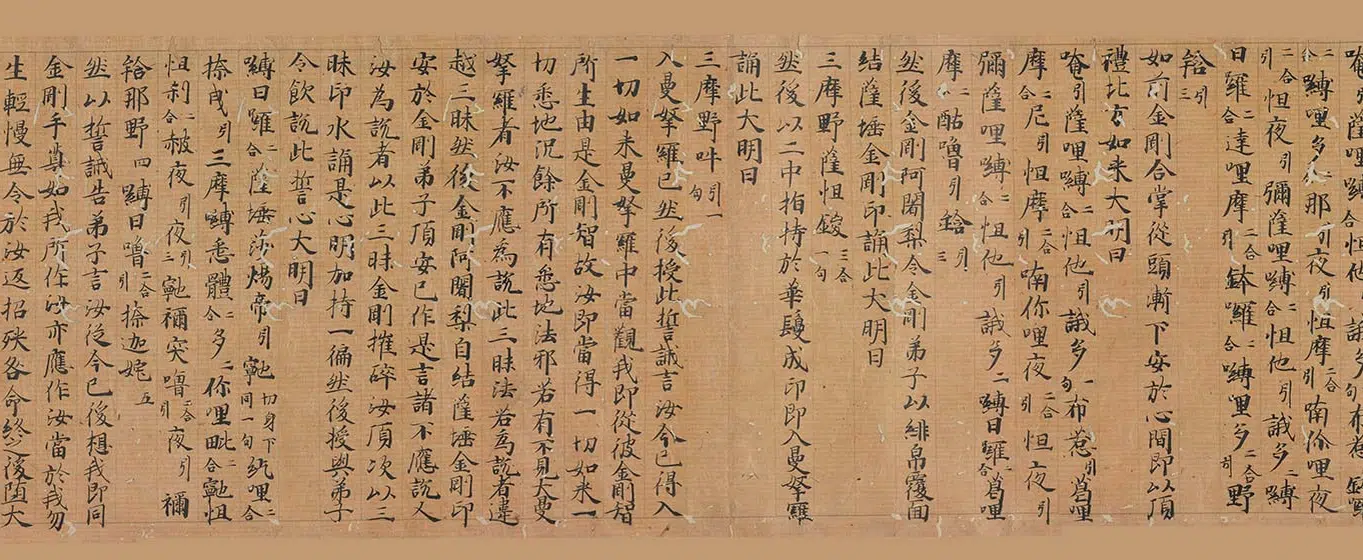 唵薩哩嚩合怛他誐多句布惹
二合嚩哩多二合那引夜引怛摩二合喃你哩夜
二合引怛夜引彌薩哩嚩二合怛他引誐多二嚩
日羅二合達哩摩二合鉢囉二合嚩哩多二合野引
引三
如前金剛合掌從頭漸下安於心間即以頂
禮北方如来大明曰
唵引薩哩嚩二合怛他引誐多一句布惹引葛哩
摩二合尼引怛摩二合引喃你哩夜二合怛夜引
彌薩哩嚩二合怛他引誐多二嚩日羅二合葛哩
摩二合酤嚕引引三
然後金剛阿闍梨令金剛弟子以緋帛覆面
結薩埵金剛印誦此大明曰
三摩野薩怛鑁三合一句
然後以二中指持於華鬘成印即入曼拏羅
誦此大明曰
三摩野吽引一句
入曼拏羅已然後授此誓誡言汝今已得入
一切如来曼拏羅中當觀我即從彼金剛智
所生由是金剛智故汝即當得一切如来一
切悉地況餘所有悉地法邪若有不見大曼
拏羅者汝不應為說此三昧法若為說者違
越三昧然後金剛阿闍梨自結薩埵金剛印
安於金剛弟子頂安已作是言諸不應說人
汝為說者以此三昧金剛摧碎汝頂次以三
昧印水誦是心明加持一徧然後授與弟子
令飲說此誓心大明曰
嚩日囉二合薩埵莎煬帝引切身下同一句紇哩二合
捺曳引三摩嚩悉體二合多二你哩毗二合怛
怛刹二合赦夜引夜三禰突嚕二合引夜引禰
那野四嚩日嚕二合引捺迦姹五
然以誓誡告弟子言汝從今已後想我即同
金剛手尊如我所作汝亦應作汝當於我勿
生輕慢無令於汝返招殃咎命終之後墮大